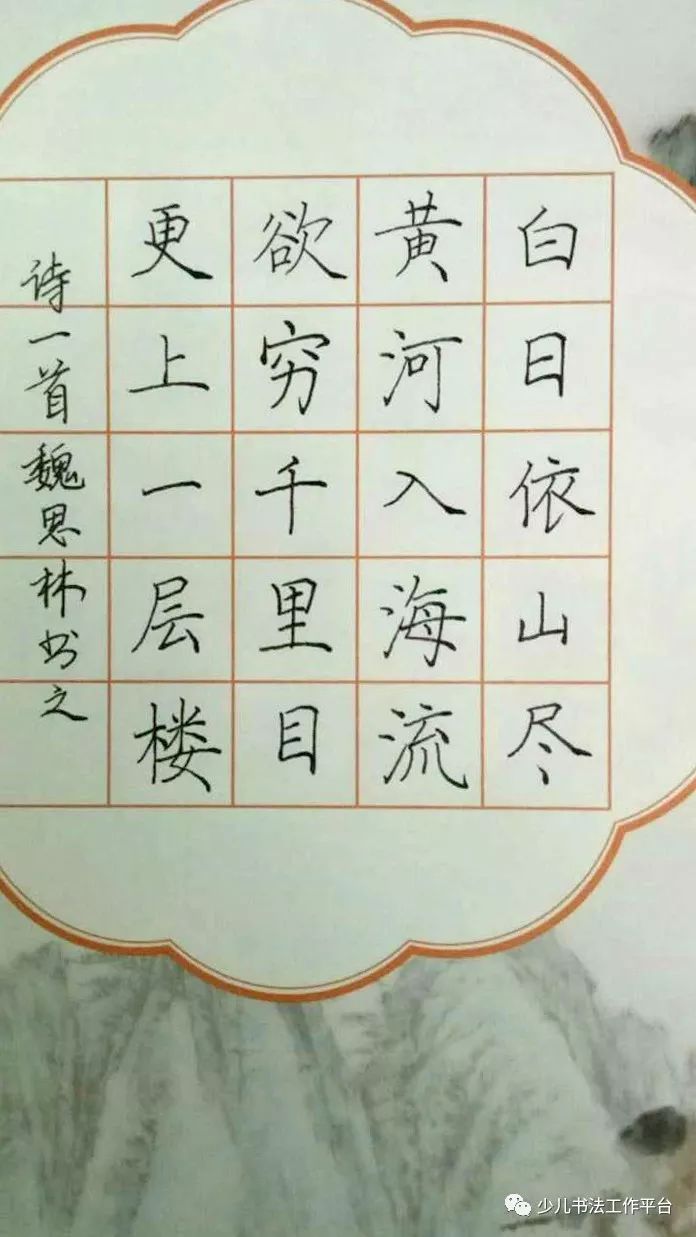 白日依山尽
黄河入海流
欲穷千里目
更上一层楼
诗一首魏思林书之
少儿书法工作平台